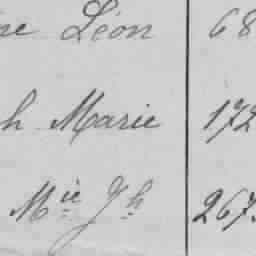 ne Léon 68
h Marie 172
Mie Jh 267